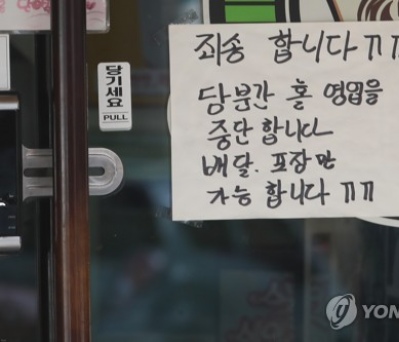 죄송 합니다 ㅠㅠ
당분간 홀 영업을
중단 합니다
배달. 포장만
가능 합니다 ㅠㅠ
당기세요
PULL
YON